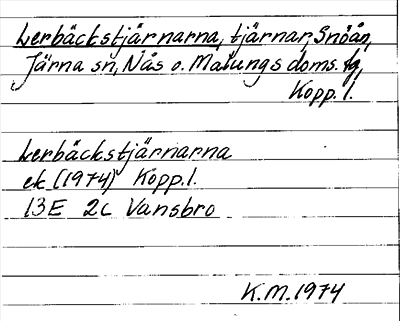 Lerbäckstjärnarna, tjärnar, Snöån,
Järna sn, Nås o. Malungs doms. tg,
Kopp. l.
Lerbäckstjärnarna
ek (1974) Kopp. l.
13E 2c Vansbro
K.M. 1974